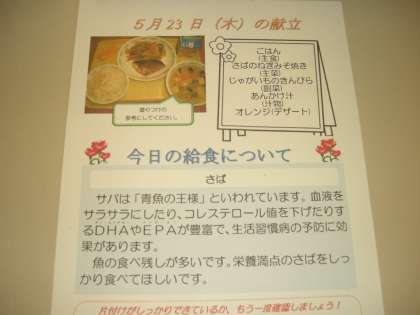 5月23日(木)の献立
ごはん
(主食)
さばのねぎみそ焼き
(主菜)
じゃがいものきんぴら
(副菜)
あんかけ汁
(汁物)
オレンジ(デザート)
盛りつけの
参考にしてください。
今日の給食について
さば
サバは「青魚の王様」といわれています。血液を
サラサラにしたり、コレステロール値を下げたりす
るDHAやEPAが豊富で、生活習慣病の予防に効
果があります。
魚の食べ残しが多いです。栄養満点のさばをしっ
かり食べてほしいです。
片付けがしっかりできているか、もう一度確認しましょう！